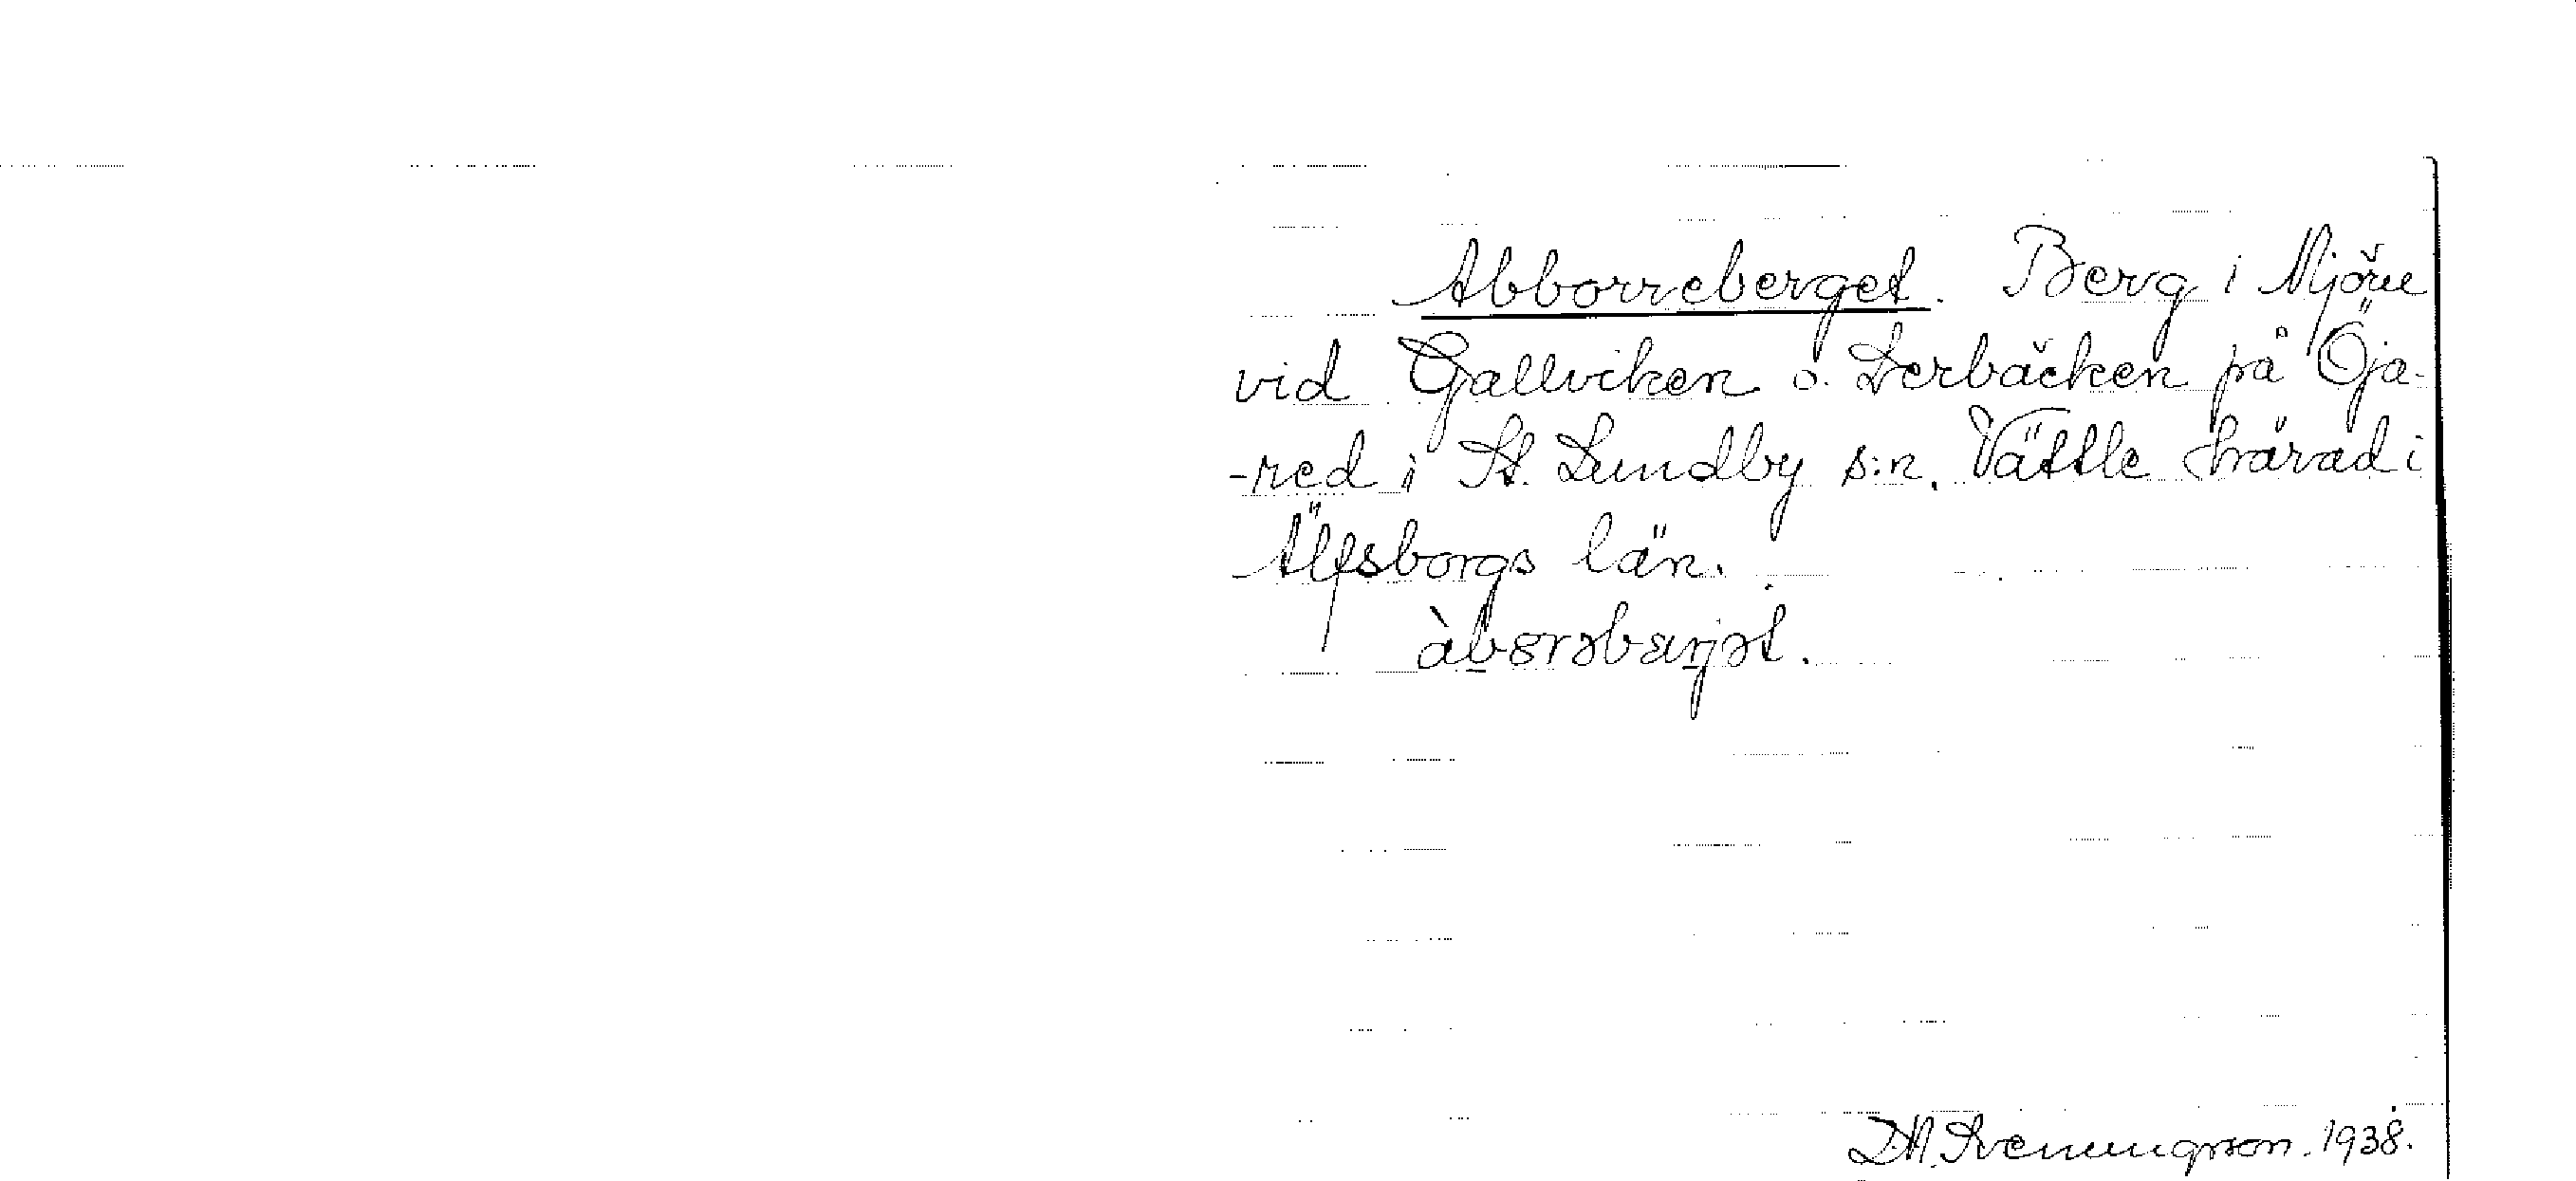 Abborreberget. Berg i Mjörn
vid Gallviken o. Lerbäcken på Öja-
-red i St. Lundby s:n. Vättle härad i
Älfsborgs län.
àbɞrəbærjət.
1938.